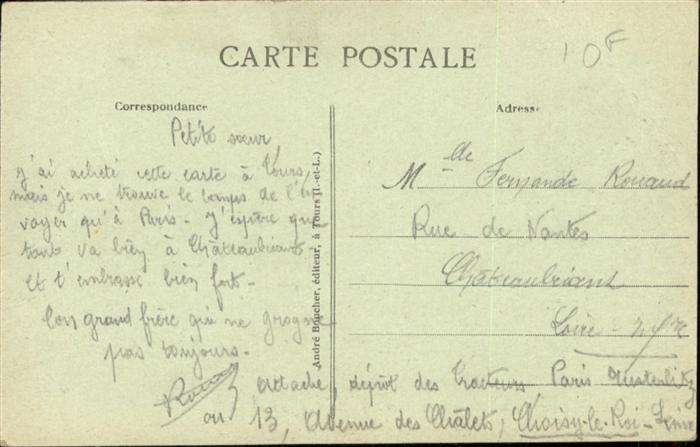 CARTE POSTALE
10F
Correspondance
Adresse
Petite sœur,
J'ai acheté cette carte à Tours,
mais je ne trouve le temps de l'en
voyer qu'à Paris - J'espère que
tout va bien à Châteaubriant -
Et t'embrasse bien fort -
Ton grand frère qui ne grogne
pas toujours.
André Boucher, éditeur, à Tours (I.-et-L.)
Mlle Fernande Rouaud
Rue de Nantes
Châteaubriant
Loire - Infre
attaché, dépôt des tracteurs, Paris Austerlitz
ou 13, Avenue des Châlets, Choisy-le-Roi - Seine